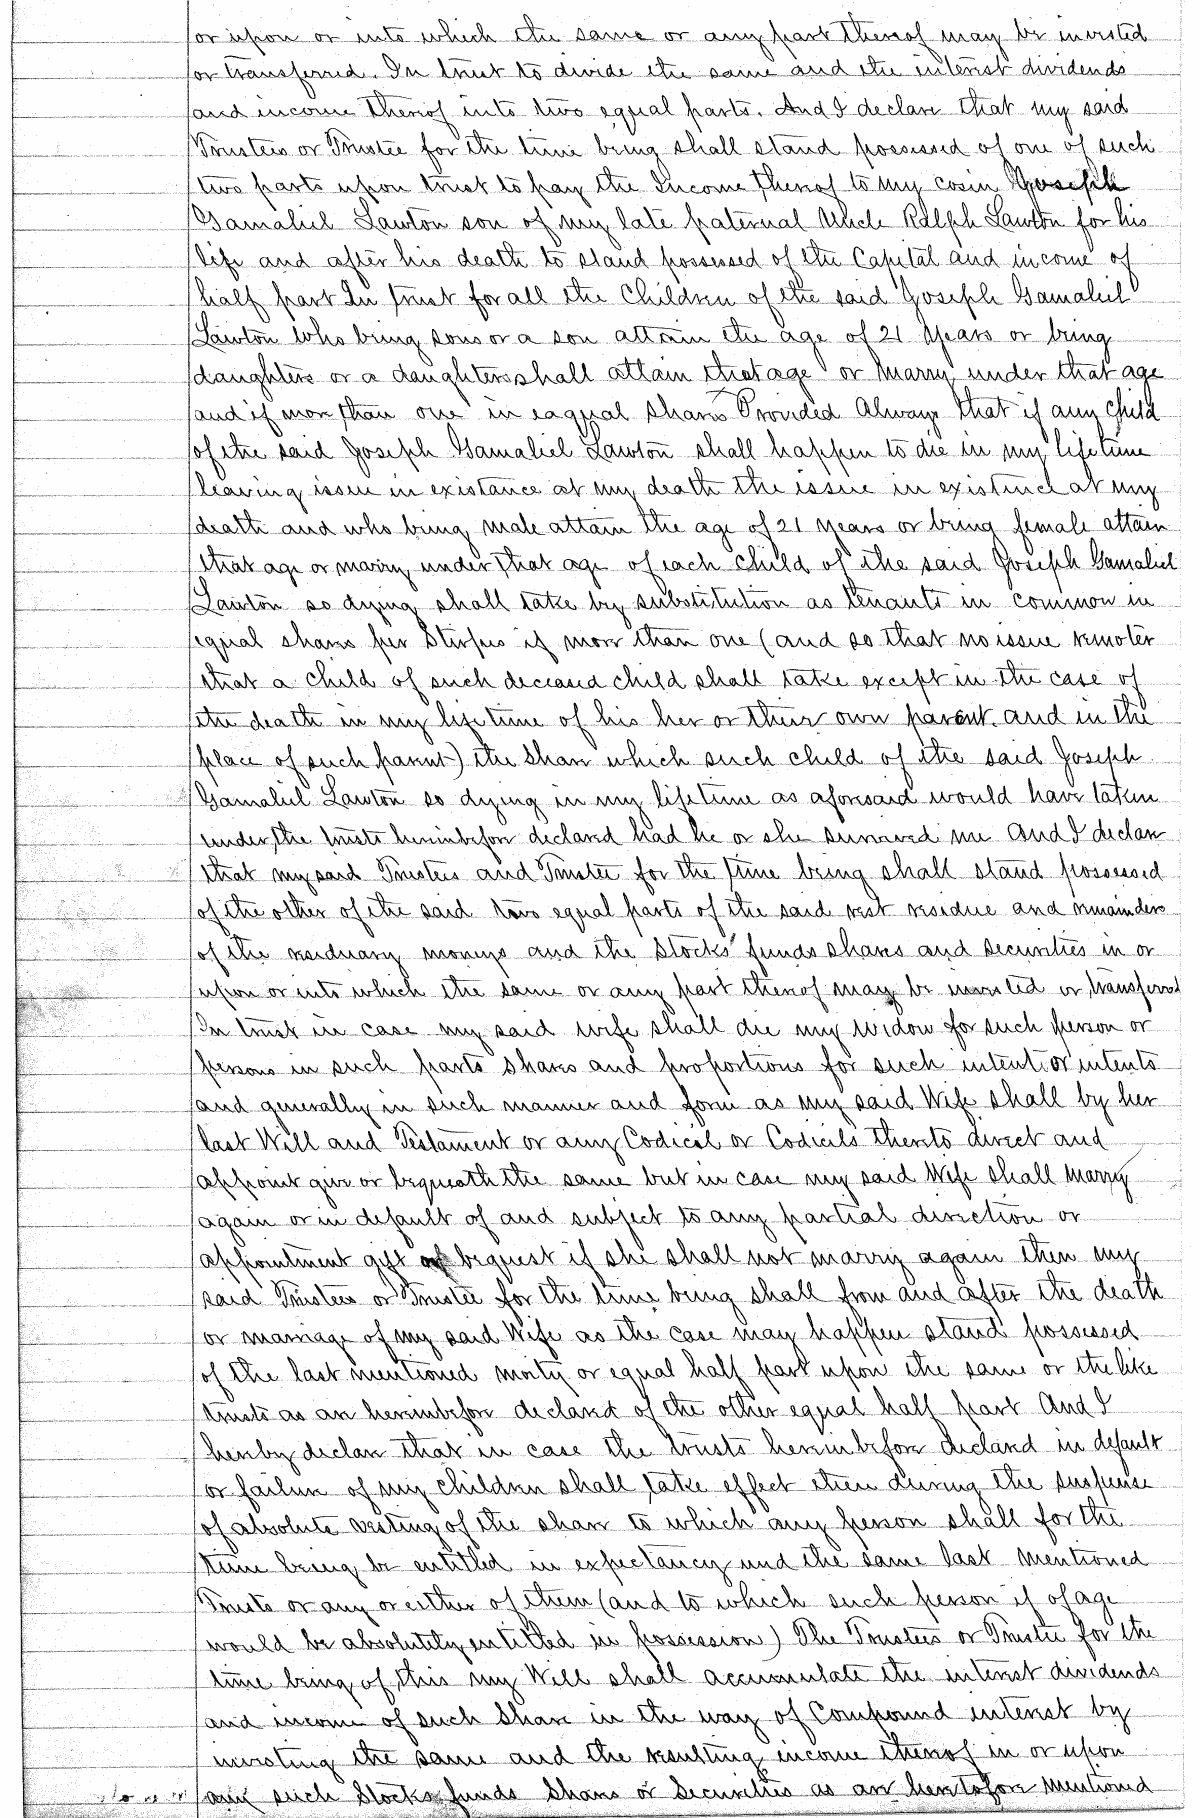 or upon or into which the same or any part thereof may be invested
or transferred. In trust to divide the same and the interest dividends
and income thereof into two equal parts. And I declare that my said
Trustees or Trustee for the time being shall stand possessed of one of such
two parts upon trust to pay the Income thereof to my cosin Joseph
Gamaliel Lawton son of my late paternal Uncle Ralph Lawton for his
life and after his death to stand possessed of the Capital and income of
half part In trust for all the Children of the said Joseph Gamaliel
Lawton who being sons or a son attain the age of 21 Years or being
daughters or a daughters shall attain that age or Marry under that age
and if more than one in eaqual shares Provided Always that if any child
of the said Joseph Gamaliel Lawton shall happen to die in my lifetime
leaving issue in existance at my death the issue in existence at my
death and who being male attain the age of 21 years or being female attain
that age or marry under that age of each child of the said Joseph Gamaliel
Lawton so dying shall take by substitution as tenants in common in
equal shares per Stirpes if more than one (and so that no issue remoter
that a child of such deceased child shall take except in the case of
the death in my lifetime of his her or their own parent and in the
place of such parent) the share which such child of the said Joseph
Gamaliel Lawton so dying in my lifetime as aforesaid would have taken
under the trusts hereinbefore declared had he or she survived me And I declare
that my said Trustees and Trustee for the time being shall stand possessed
of the other of the said two equal parts of the said rest residue and remainder
of the residuary moneys and the stocks funds shares and securities in or
upon or into which the same or any part thereof may be invested or transferred
In trust in case my said wife shall die my widow for such person or
persons in such parts shares and proportions for such intent or intents
and generally in such manner and form as my said Wife shall by her
last Will and Testament or any Codicil or Codicils thereto direct and
appoint give or bequeath the same but in case my said Wife shall Marry
again or in default of and subject to any partial direction or
appointment gift or bequest if she shall not marry again then my
said Trustees or Trustee for the time being shall from and after the death
or marriage of my said Wife as the case may happen stand possessed
of the last mentioned moity or equal half part upon the same or the like
trusts as are hereinbefore declared of the other equal half part And I
hereby declare that in case the trusts hereinbefore declared in default
or failure of my children shall take effect then during the suspense
of absolute vesting of the share to which any person shall for the
time being be entitled in expectancy und the same last mentioned
Trusts or any or either of them (and to which such person if of age
would be absolutely entitled in possession) The Trustees or Trustee for the
time being of this my Will shall accumulate the interest dividends
and income of such Share in the way of Compound interest by
investing the same and the resulting income thereof in or upon
any such Stocks funds Shares or Securities as are heretofore mentioned